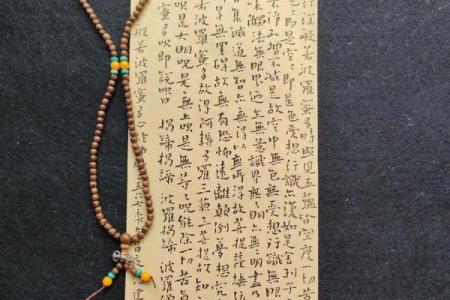 行深般若波羅蜜多時照見五蘊皆空度一切苦
即是空空即是色受想行識亦復如是舍利子
不淨不增不減是故空中無色無受想行識無眼
味觸法無眼界乃至無意識界無無明亦無無明盡乃
集滅道無智亦無得以無所得故菩提薩埵依
無罣礙故無有恐怖遠離顛倒夢想究
若波羅蜜多故得阿耨多羅三藐三菩提故知
呪是大明呪是無上呪是無等等呪能除一切苦真
蜜多呪即說呪曰 揭諦揭諦 波羅揭諦 波羅僧
般若波羅蜜多心經